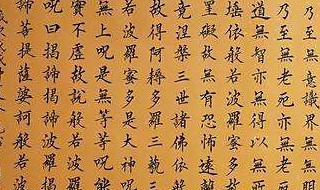 乃至無意識界無無明
乃至無老死亦無老死
道無智亦無得以無所
埵依般若波羅蜜多
罣礙故無有恐怖遠離
竟涅槃三世諸佛依般
故得阿耨多羅三藐三
若波羅蜜多是大神呪
無上呪是無等等呪能
實不虛故說般若波羅
呪曰揭諦揭諦波羅揭
諦菩提薩婆訶般若波